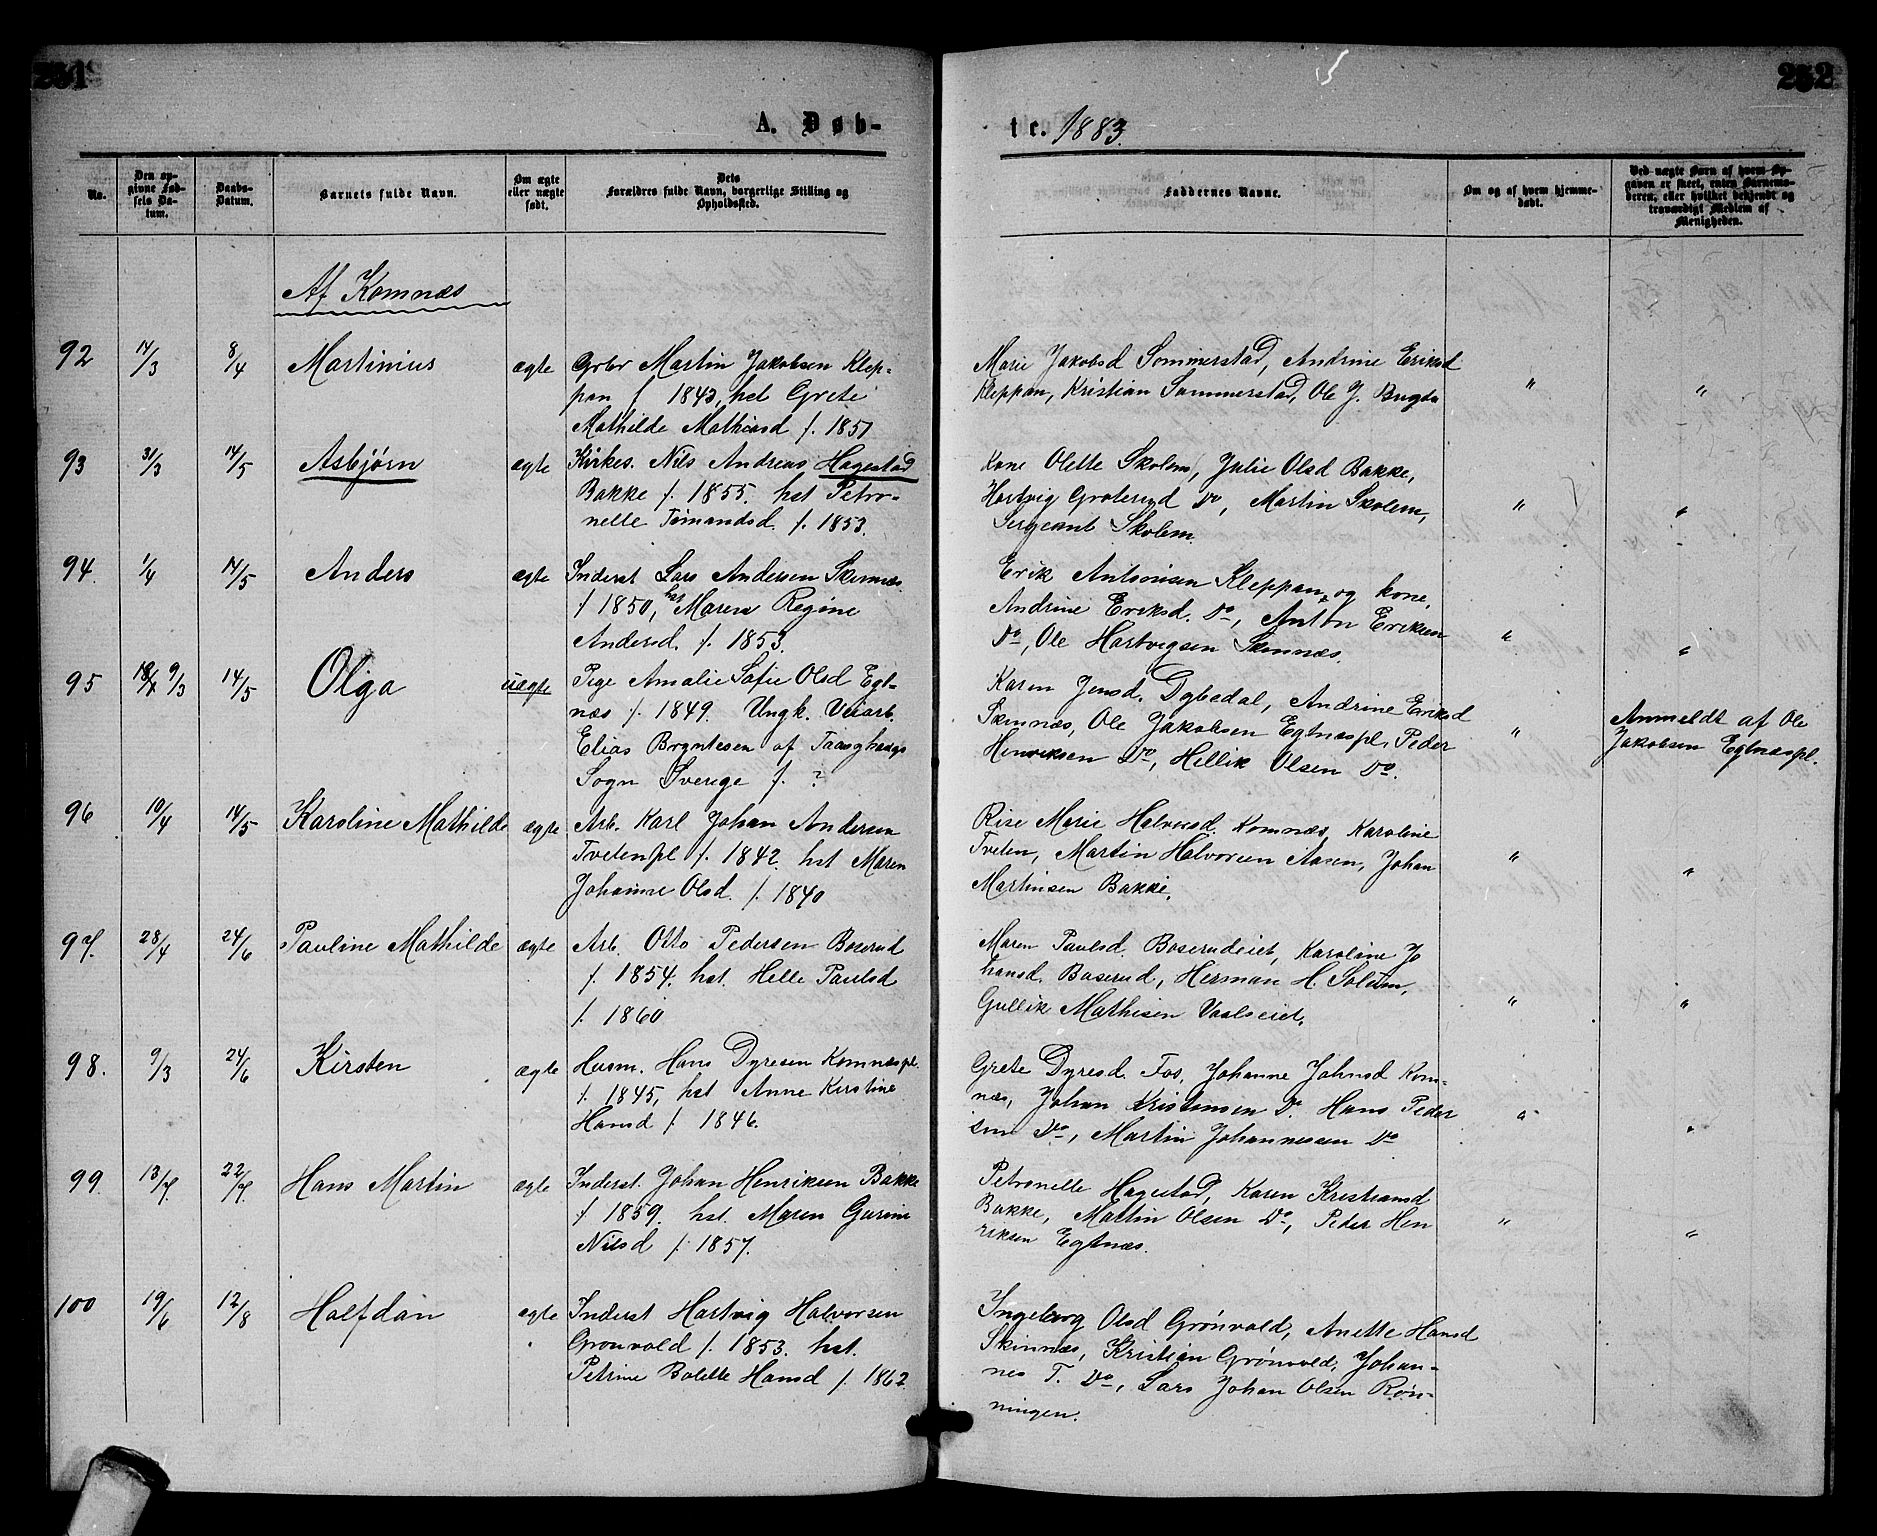 251
252
A. Døb-
te. 1883.
No.
Den op-
givne Fød-
sels Da-
tum.
Daabs-
Datum.
Barnets fulde Navn.
Om ægte
eller uægte
født.
Dets
Forældres fulde Navn, borgerlige Stilling og
Opholdssted.
Faddernes Navne.
Om og af hvem hjemme-
døbt.
Ved uægte Børn af hvem Op-
gaven er skeet, enten Barnemo-
deren, eller hvilket bekjendt og
troværdigt Medlem af
Menigheden.
Af Komnæs
92 14/3 8/4 Martinius ægte Grbr Martin Jakobsen Klep-
pan f. 1843, hst Grete
Mathilde Mathiasd f. 1851
Marie Jakobsd Sommerstad, Andrine Eriksd
Kleppan, Kristian Sommerstad, Ole J. Bugda
" "
93 31/3 14/5 Asbjørn ægte Kirkes. Nils Andreas Hagestad
Bakke f. 1855. hst Petro-
nelle Tømandsd. f. 1853.
Kone Olette Skolem, Julie Olsd Bakke,
Hartvig Groterud Do, Martin Skolem,
Sergeant Skolem.
" "
94. 1/4 14/5 Anders ægte Inderst Lars Andersen Skinnæs
f 1850, hst Maren Regine
Andersd. f. 1853.
Erik Antonisen Kleppan og kone,
Andrine Eriksd. Do, Anton Eriksen
Do, Ole Hartvigsen Skinnæs.
" "
95 9/3 14/5 Olga uægte Pige Amalie Sofie Olsd Egt-
næs f. 1849. Ungk. Veiarb.
Elias Bryntesen af
Sogn Sverige f. ?
Karen Jensd. Dybedal, Andrine Eriksd
Skinnæs, Ole Jakobsen Egtnæspl, Peder
Henriksen Do, Hellik Olsen Do.
" Anmeldt af Ole
Jakobsen Egtnæspl.
96 10/4 14/5 Karoline Mathilde ægte Arb. Karl Johan Andersen
Tvetenpl f. 1842. hst Maren
Johanne Olsd. f. 1840
Rise Marie Halvorsd. Komnæs, Karoline
Tveten, Martin Halvorsen Aasen, Johan
Martinsen Bakke.
" "
97. 28/4 24/6 Pauline Mathilde ægte Arb. Otto Pedersen Boserud
f. 1854. hst. Helle Paulsd
f. 1860
Maren Paulsd. Boserudeiet, Karoline Jo
hansd. Boserud, Herman H. Solum,
Gullik Mathisen Vaalseiet.
" "
98. 9/3 24/6 Kirsten ægte Husm. Hans Dyresen Komnæspl.
f. 1845, hst Anne Kirstine
Hansd f. 1846.
Grete Dyresd. Fos, Johanne Johnsd Kom-
næs, Johan Kristensen Do. Hans Peder
sen Do, Martin Johannessen Do
" "
99. 13/7 22/7 Hans Martin ægte Inderst. Johan Henriksen Bakke
f 1859. hst. Maren Gurine
Nilsd f. 1857.
Petronelle Hagestad, Karen Kristiansd
Bakke, Martin Olsen Do, Peder Hen
riksen Egtnæs.
" "
100 19/6 12/8 Halfdan ægte Inderst Hartvig Halvorsen
Grønvold f. 1853. hst.
Petrine Bolette Hansd f. 1862
Ingeborg Olsd Grønvold, Anette Hansd
Skinnæs, Kristian Grønvold, Johan-
nes T. Do, Lars Johan Olsen Røn-
ningen.